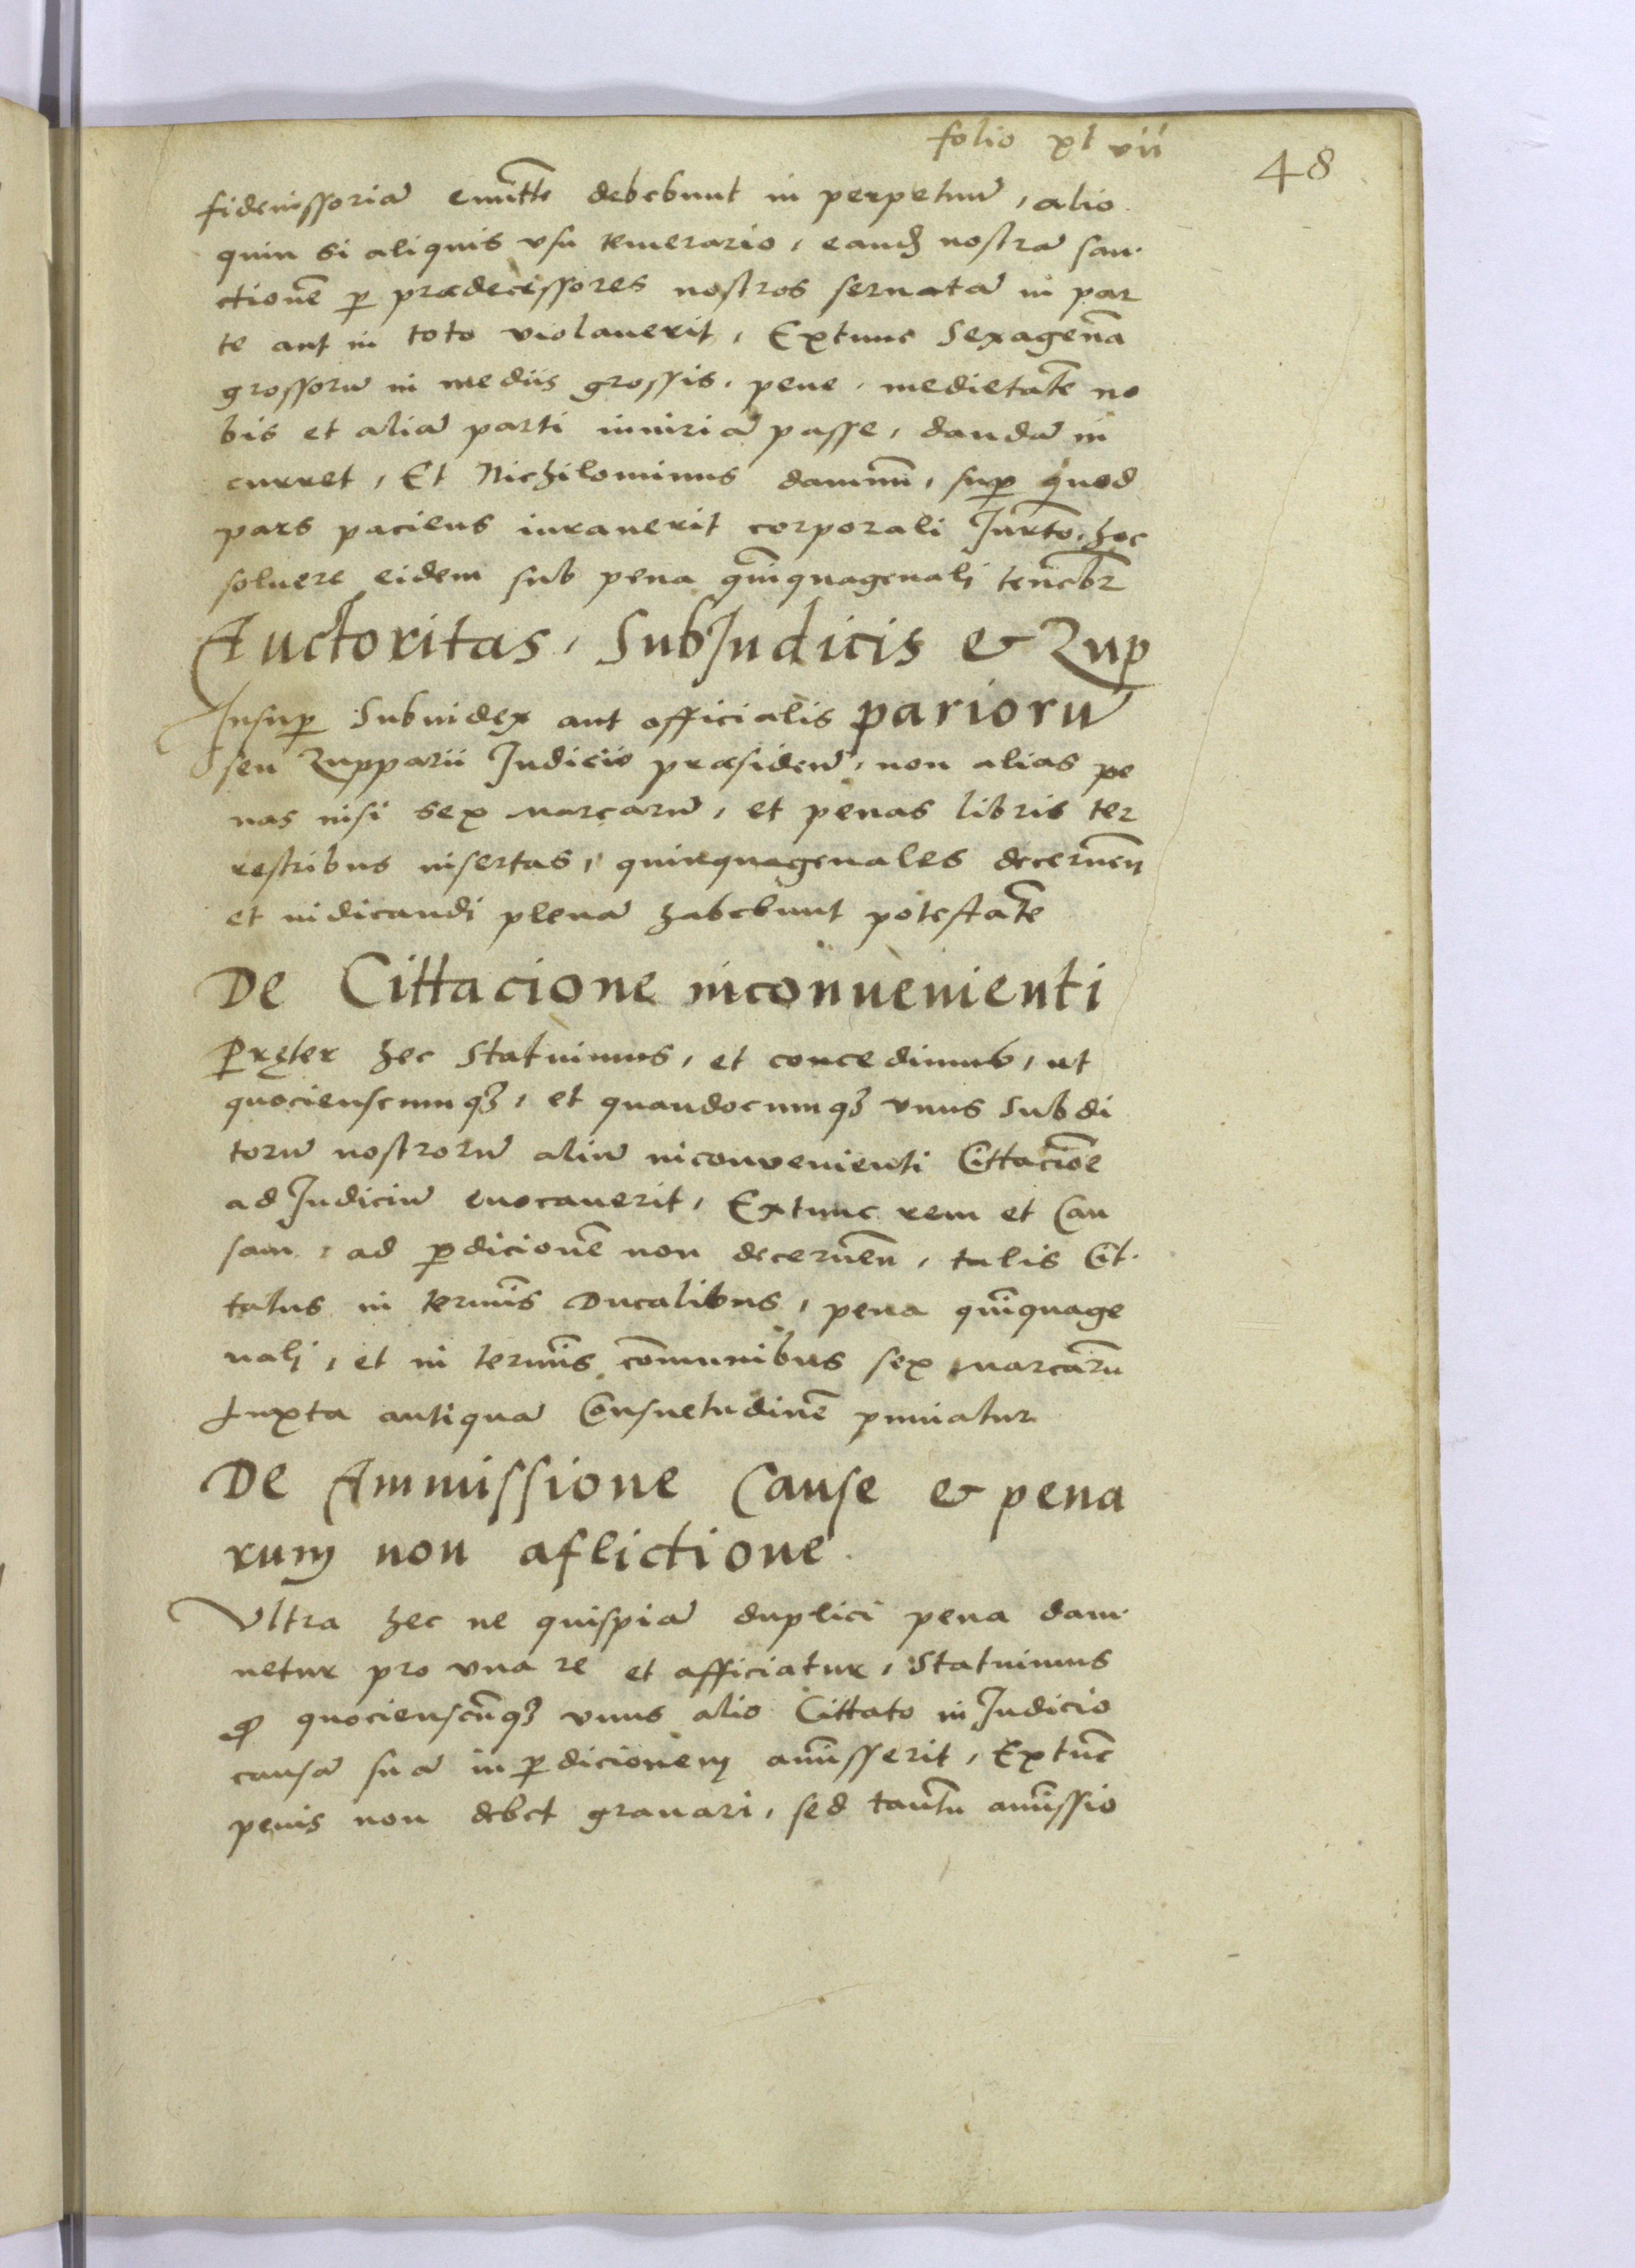 folio xl vii
48
fideiussoriā emitt̄e debebunt in perpetuū, alio
quin si aliquis vsu temerario, eandꝫ nostrā san.
ctionē ꝑ prædecessores nostros seruatā in par
te aut in toto violauerit, Extunc Sexagēna
grossorū in mediis grossis, pene, medietatē no
bis et aliā parti iniuriā passe, dandā in
curret, Et Nichilominus damnū, suꝑ quod
pars paciens iurauerit corporali Jurto, hoc
soluere eidem sub pena quīquagenali tenebr̄
Auctoritas, SubJudicis & Zup
Insuꝑ Subiudex aut officialis pariorū
seu Zupparii Judicio præsidenō, non alias pe
nas nisi sex marcarū, et penas libris ter
restribus insertas, quinquagenales decernēn
et iudicandi plenā habebunt potestatē
De Cittacione inconuenienti
Pręter hec Statuimus, et concedimus, ut
quocienscumqꝫ, et quandocumqꝫ vnus Subdi
torū nostrorū aliū inconuenienti Cittaciōe
ad Judiciū euocauerit, Extunc rem et Cau
sam, ad ꝑdicionē non decernēn, talis Cit.
tatus in termīs Ducalibus, pena quīquage
nali, et in termīs cōmunibus sex marcarū
Juxta antiquā Consuetudinē puniatur
De Ammissione Cause & pena
rum non aflictione
Vltra hec ne quispiā duplici pena dam.
netur pro vna re et afficiatur, Statuimus
ꝙ quocienscūqꝫ vnus alio Cittato in Judicio
causā suā in ꝑdicionem amīsserit, Extūc
penis non debet grauari, sed tantū amīssio